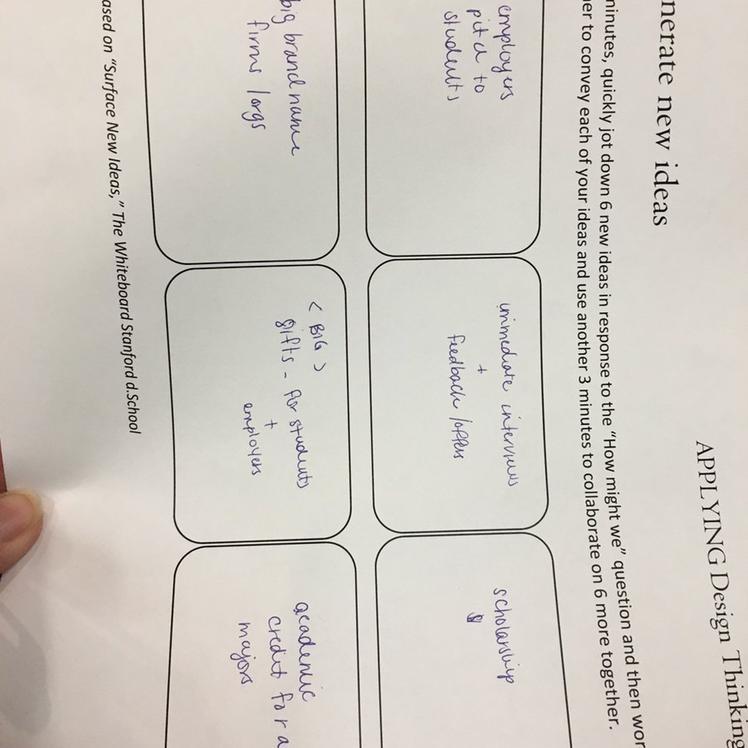 APPLYING Design Thinking
nerate new ideas
minutes, quickly jot down 6 new ideas in response to the “How might we” question and then wor
er to convey each of your ideas and use another 3 minutes to collaborate on 6 more together.
employers
pitch to
students
immediate interviews
+
feedback/offers
scholarship
$
big brand name
firms/orgs
< BIG >
gifts - for students
+
employers
academic
credit for a
majors
ased on “Surface New Ideas,” The Whiteboard Stanford d.School